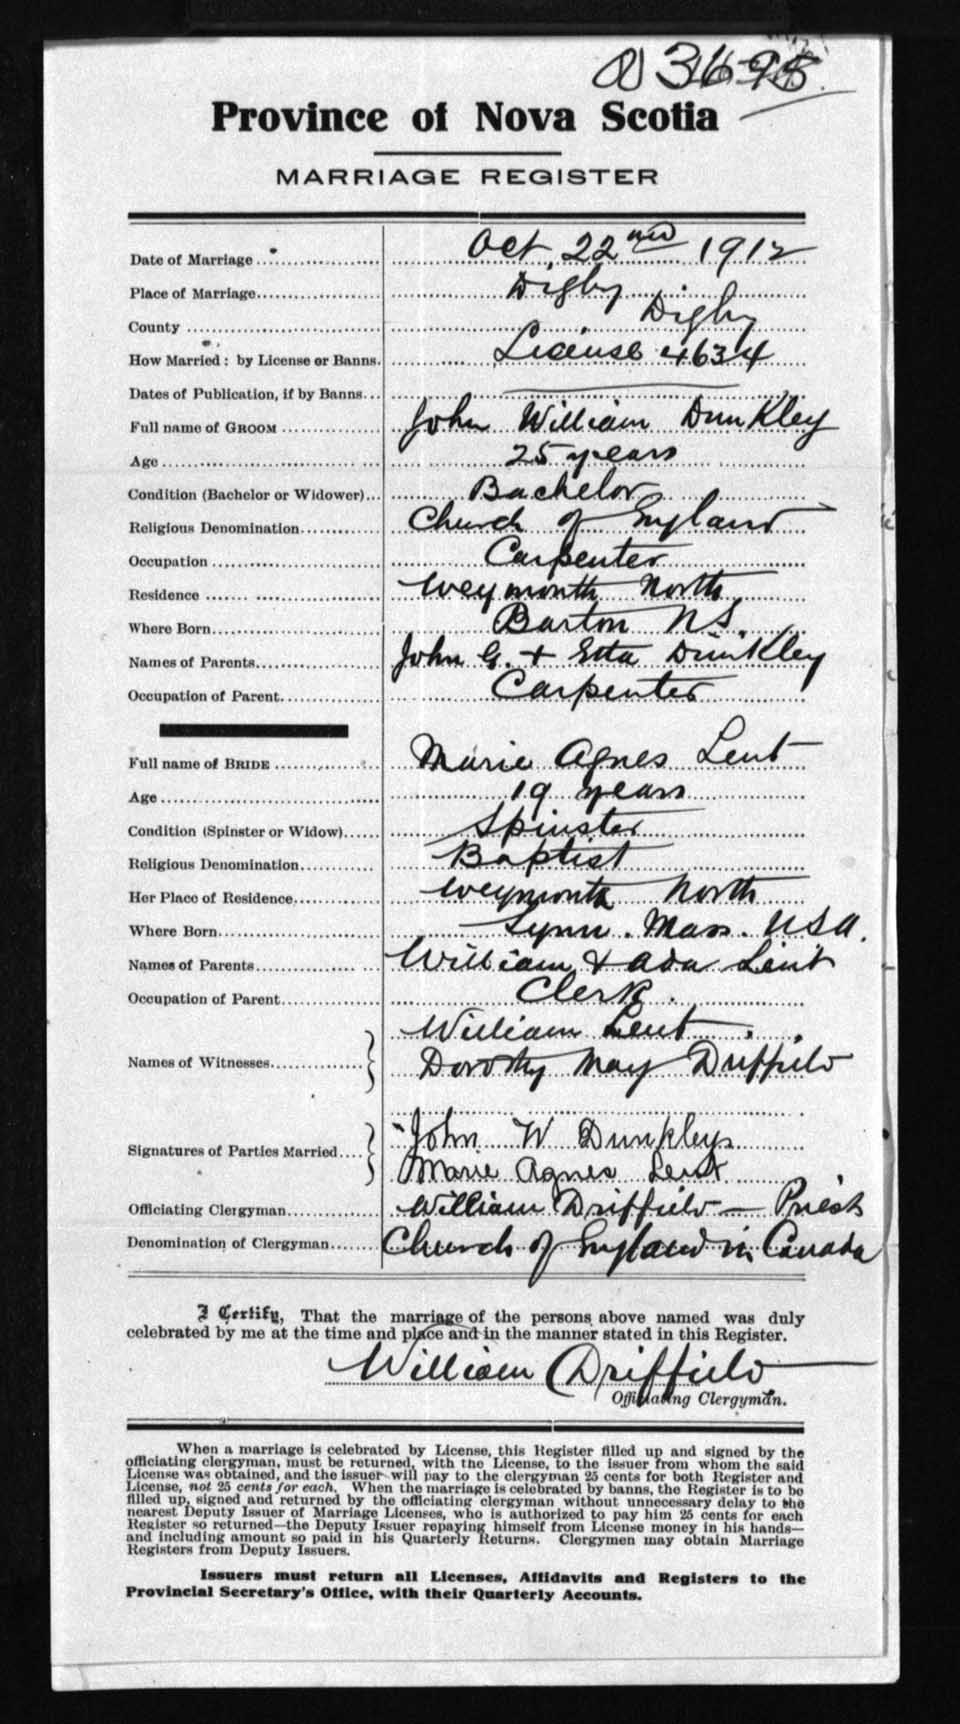 3695
Province of Nova Scotia
MARRIAGE REGISTER
Date of Marriage Oct. 22nd 1912
Place of Marriage Digby
County Digby
How Married: by License or Banns. License 4634
Dates of Publication, if by Banns
Full name of GROOM John William Dunkley
Age 25 years
Condition (Bachelor or Widower) Bachelor
Religious Denomination Church of England
Occupation Carpenter
Residence Weymouth North
Where Born Barton N.S.
Names of Parents John G. + Etta Dunkley
Occupation of Parent Carpenter
Full name of BRIDE Marie Agnes Lent
Age 19 years
Condition (Spinster or Widow) Spinster
Religious Denomination Baptist
Her Place of Residence Weymouth North
Where Born Lynn. Mass. U.S.A.
Names of Parents William + Ada Lent
Occupation of Parent Clerk.
William Lent
Names of Witnesses Dorothy May Driffield
John W Dunkley
Signatures of Parties Married
Marie Agnes Lent
Officiating Clergyman William Driffield — Priest
Denomination of Clergyman Church of England in Canada
I Certify, That the marriage of the persons above named was duly
celebrated by me at the time and place and in the manner stated in this Register.
William Driffield
Officiating Clergyman.
When a marriage is celebrated by License, this Register filled up and signed by the
officiating clergyman, must be returned, with the License, to the issuer from whom the said
License was obtained, and the issuer will pay to the clergyman 25 cents for both Register and
License, not 25 cents for each. When the marriage is celebrated by banns, the Register is to be
filled up, signed and returned by the officiating clergyman without unnecessary delay to the
nearest Deputy Issuer of Marriage Licenses, who is authorized to pay him 25 cents for each
Register so returned—the Deputy Issuer repaying himself from License money in his hands—
and including amount so paid in his Quarterly Returns. Clergymen may obtain Marriage
Registers from Deputy Issuers.
Issuers must return all Licenses, Affidavits and Registers to the
Provincial Secretary's Office, with their Quarterly Accounts.